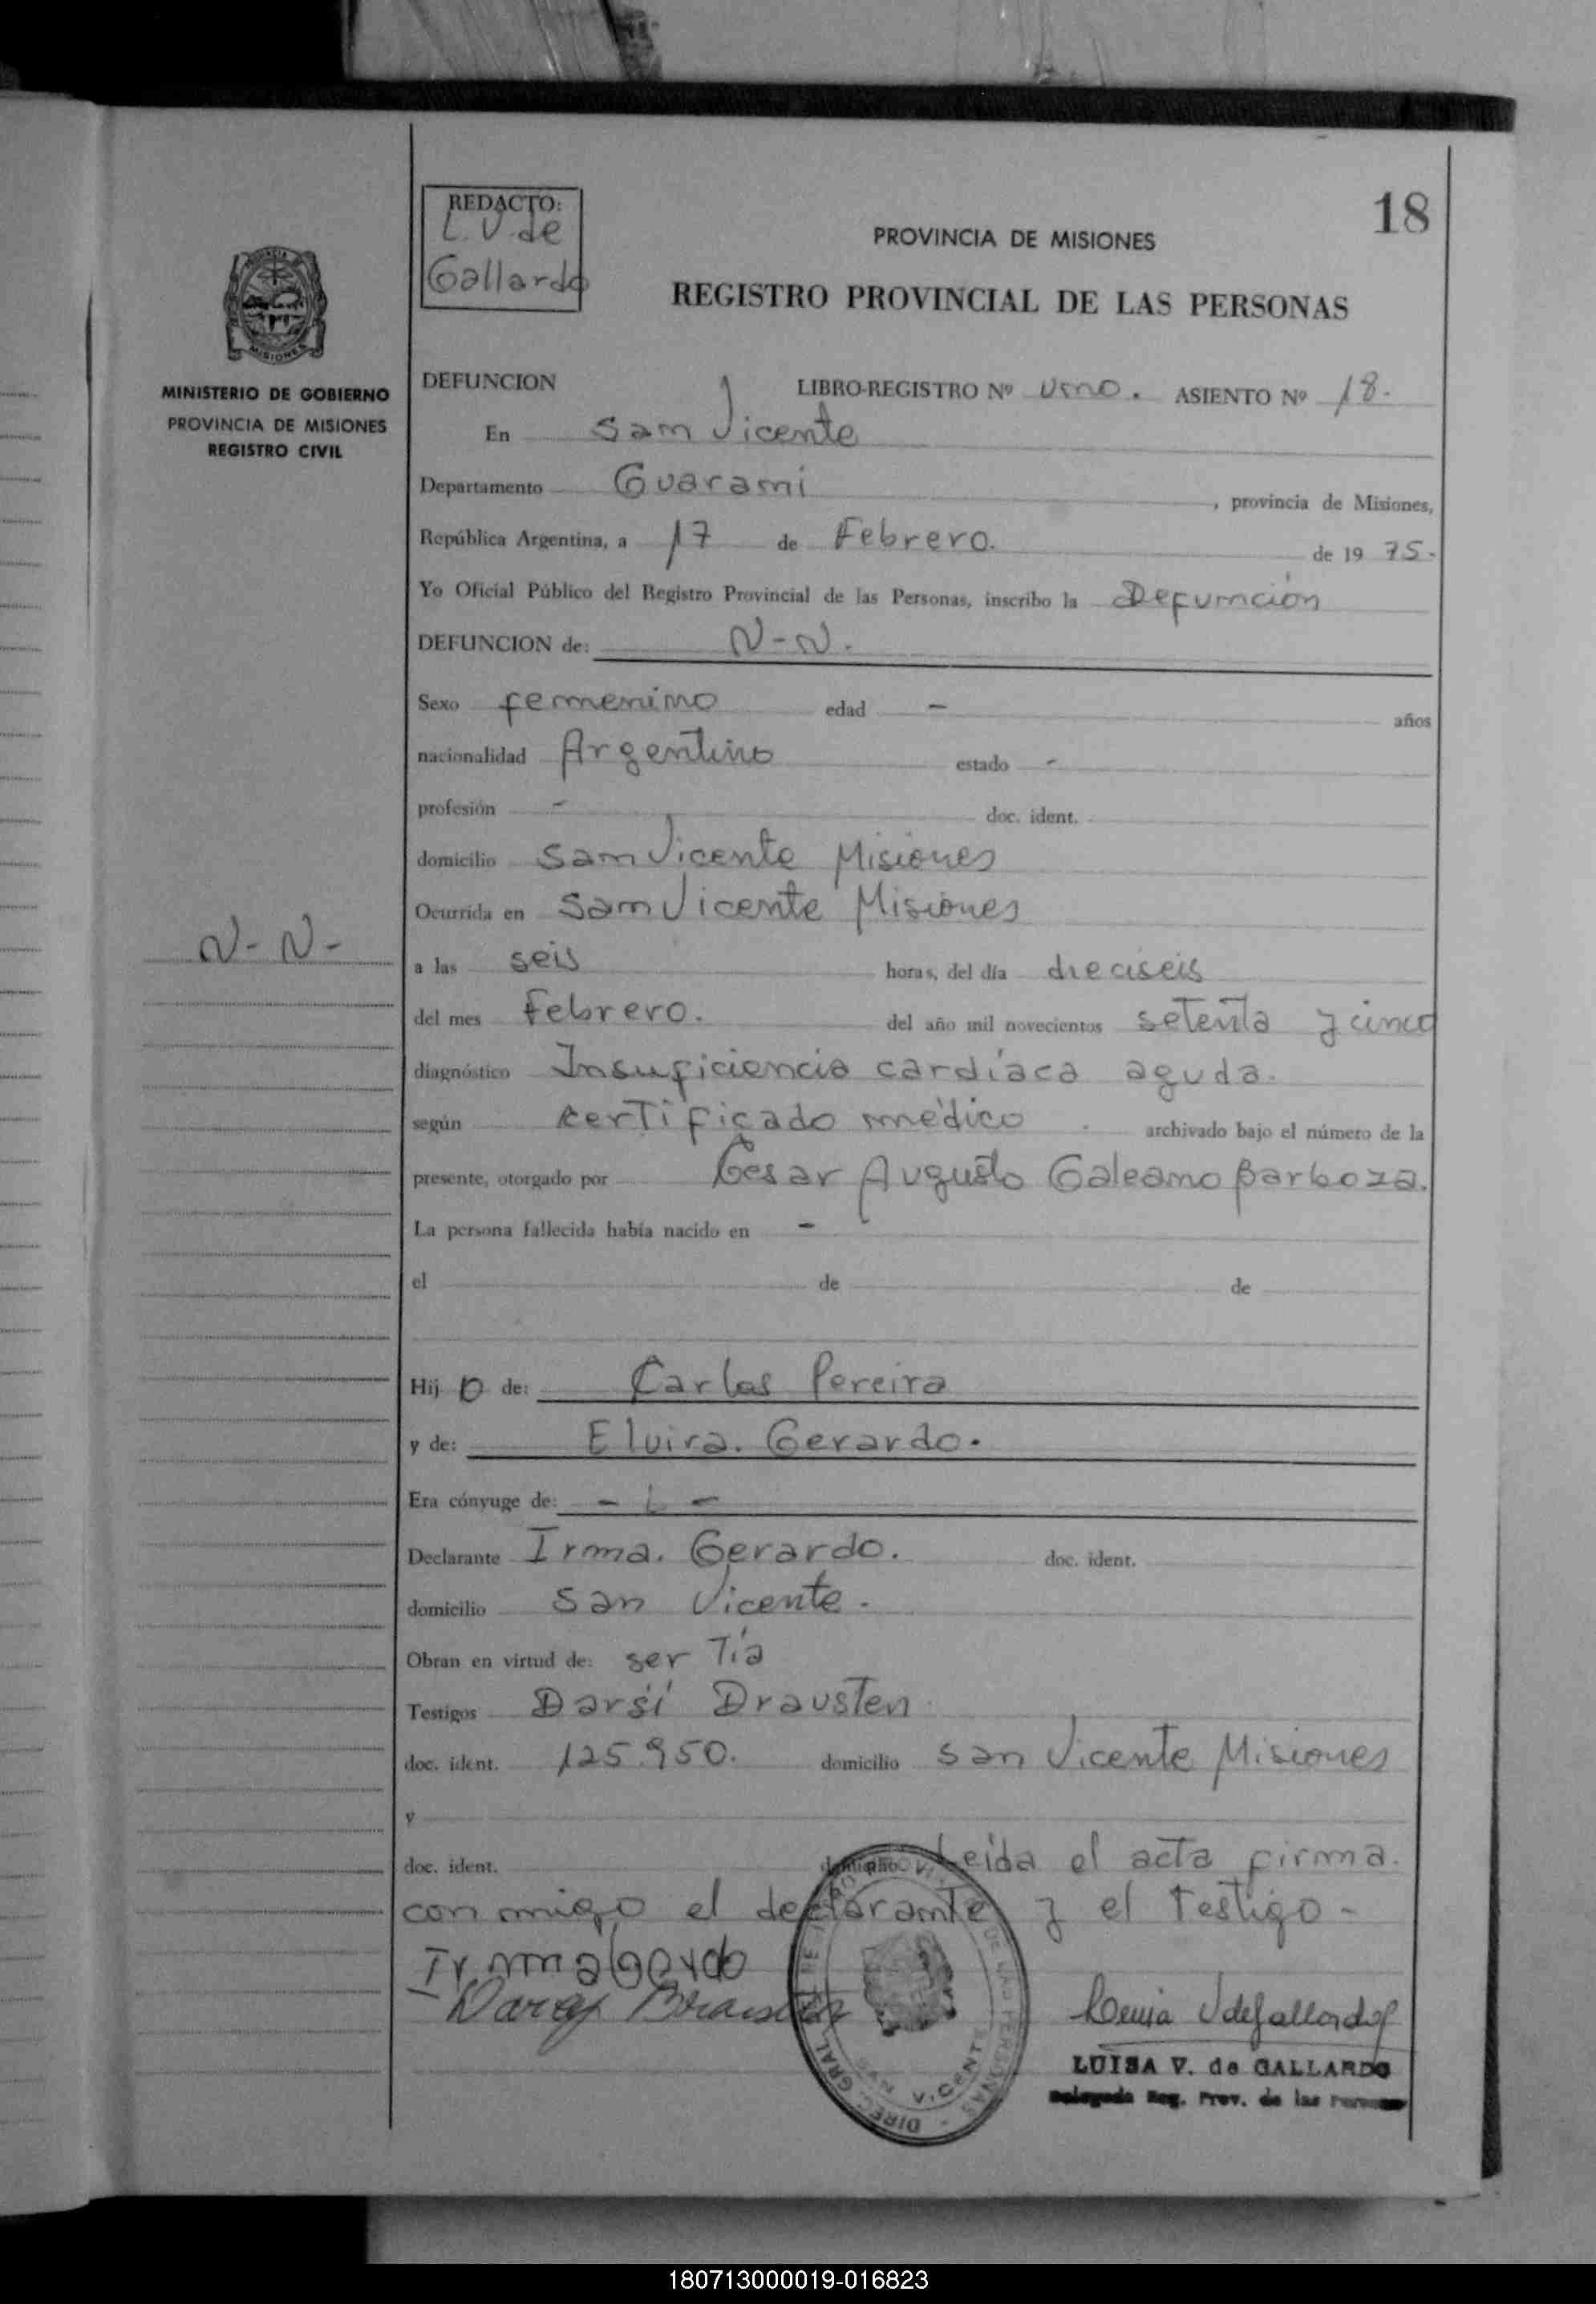 18
REDACTO:
L. V. de
Gallardo
PROVINCIA DE MISIONES
REGISTRO PROVINCIAL DE LAS PERSONAS
MISIONES
MINISTERIO DE GOBIERNO
PROVINCIA DE MISIONES
REGISTRO CIVIL
DEFUNCION LIBRO-REGISTRO Nº uno. ASIENTO Nº 18.
En San Vicente
Departamento Guarani , provincia de Misiones,
República Argentina, a 17 de Febrero. de 19 75.
Yo Oficial Público del Registro Provincial de las Personas, inscribo la Defunción
DEFUNCION de: N-N.
Sexo femenino edad - años
nacionalidad Argentino estado -
profesión - doc. ident.
domicilio San Vicente Misiones
Ocurrida en San Vicente Misiones
N-N-
a las seis horas, del día dieciseis
del mes Febrero. del año mil novecientos setenta y cinco
diagnóstico Insuficiencia cardíaca aguda.
según certificado médico . archivado bajo el número de la
presente, otorgado por Cesar Augusto Galeano Barboza.
La persona fallecida había nacido en -
el de de
Hij o de: Carlos Pereira
y de: Elvira. Gerardo.
Era cónyuge de: - -
Declarante Irma. Gerardo. doc. ident.
domicilio San Vicente.
Obran en virtud de: ser Tía
Testigos Darsi Drausten
doc. ident. 125.950. domicilio San Vicente Misiones
y
doc. ident. domicilio Leida el acta firma.
con migo el declarante y el testigo-
LUISA V. de GALLARDO
Delegada Reg. Prov. de las Personas
DIREC. GRAL. V. CENTE
180713000019-016823